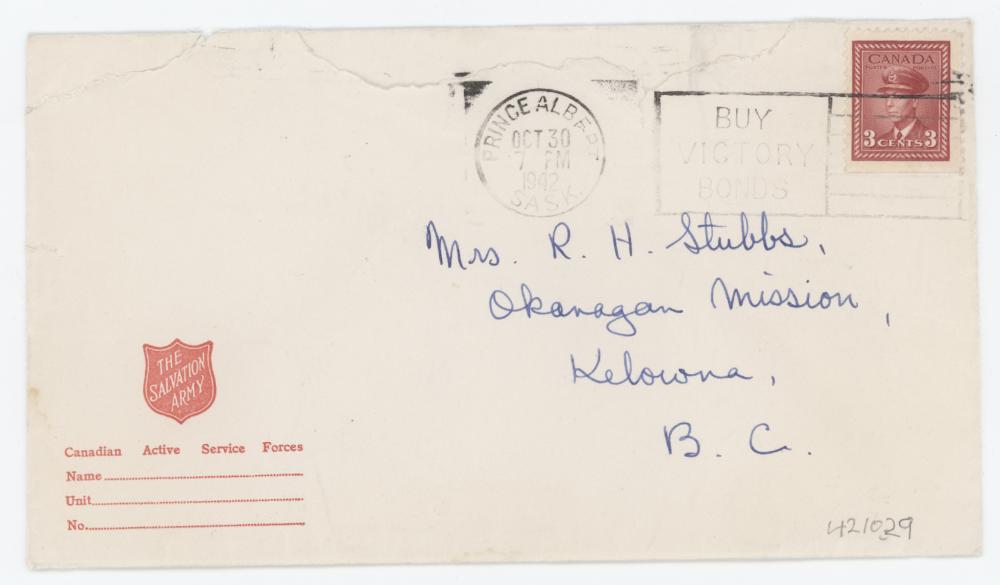 CANADA
POSTES POSTAGE
3 CENTS 3
PRINCE ALBERT
OCT 30
7 PM
1942
SASK.
BUY
VICTORY
BONDS
Mrs. R. H. Stubbs,
Okanagan Mission,
Kelowna,
B. C.
THE
SALVATION
ARMY
Canadian Active Service Forces
Name
Unit
No.
421029